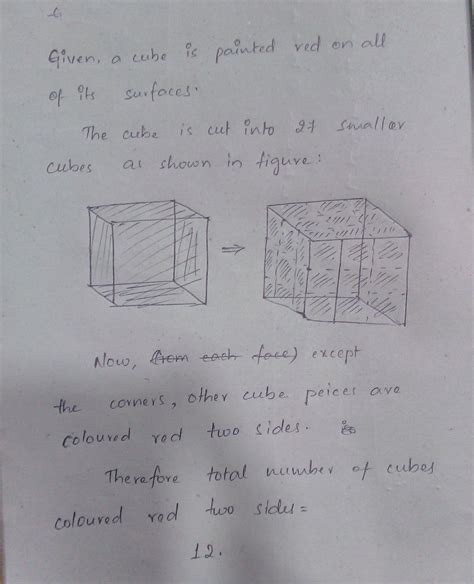 6
Given, a cube is painted red on all
of its surfaces.
The cube is cut into 27 smaller
cubes as shown in figure:
Now, (from each face) except
the corners, other cube peices are
coloured red two sides. is
Therefore total number of cubes
coloured red two sides =
12.